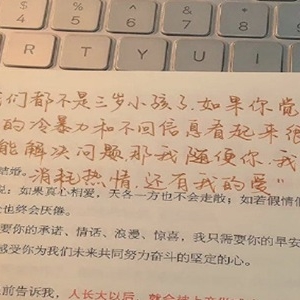 $ 4
% 5
6
& 7
* 8
R T Y U I
们都不是三岁小孩了.如果你觉
的冷暴力和不回信息看起来很
能解决问题那我随便你.我
消耗热情.还有我的爱"
结婚。
说：如果真心相爱，天各一方也不会走散；如若假情假
也终会厌倦。
要你的承诺、情话、浪漫、惊喜，我只需要你的早安
感受你为我们未来共同努力奋斗的坚定的心。
前告诉我，人长大以后，